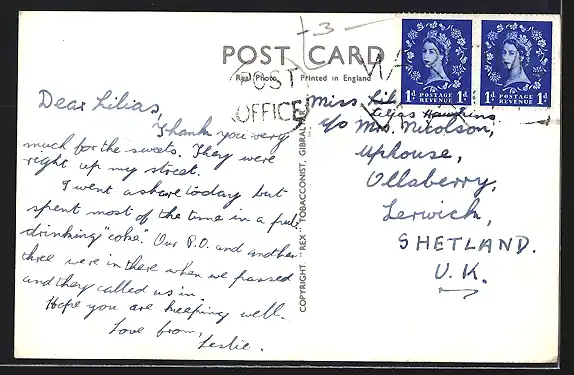 -3-
POST CARD
Real Photo Printed in England
POST
OFFICE
MA
1d POSTAGE REVENUE 1d
1d POSTAGE REVENUE 1d
Dear Lilias,
Thank you very
much for the sweets. They were
right up my street.
I went ashore today but
spent most of the time in a pub
drinking "coke". Our P.O. and another
three were in there when we passed
and they called us in.
Hope you are keeping well.
Love from,
Leslie.
COPYRIGHT. "REX" TOBACCONIST, GIBRALTAR
Miss
Lilias Hawkins.
c/o Mrs. Nicolson,
Uphouse,
Ollaberry,
Lerwick,
SHETLAND.
U.K.